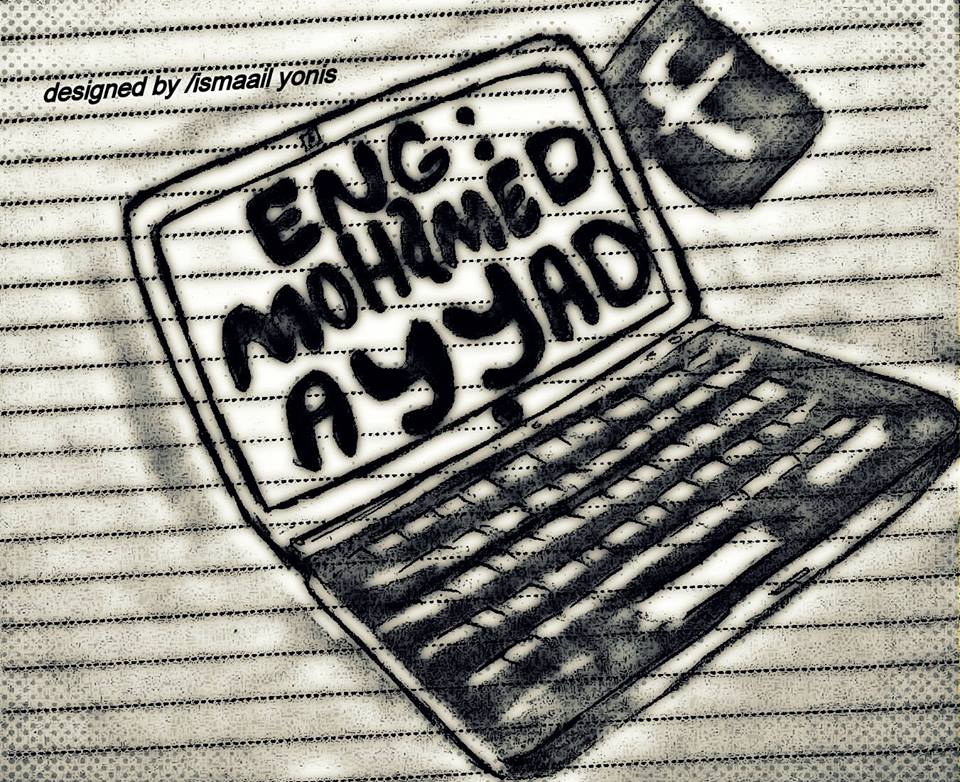 designed by /ismaail yonis
f
ENG:
MOHaMED
AYYAD